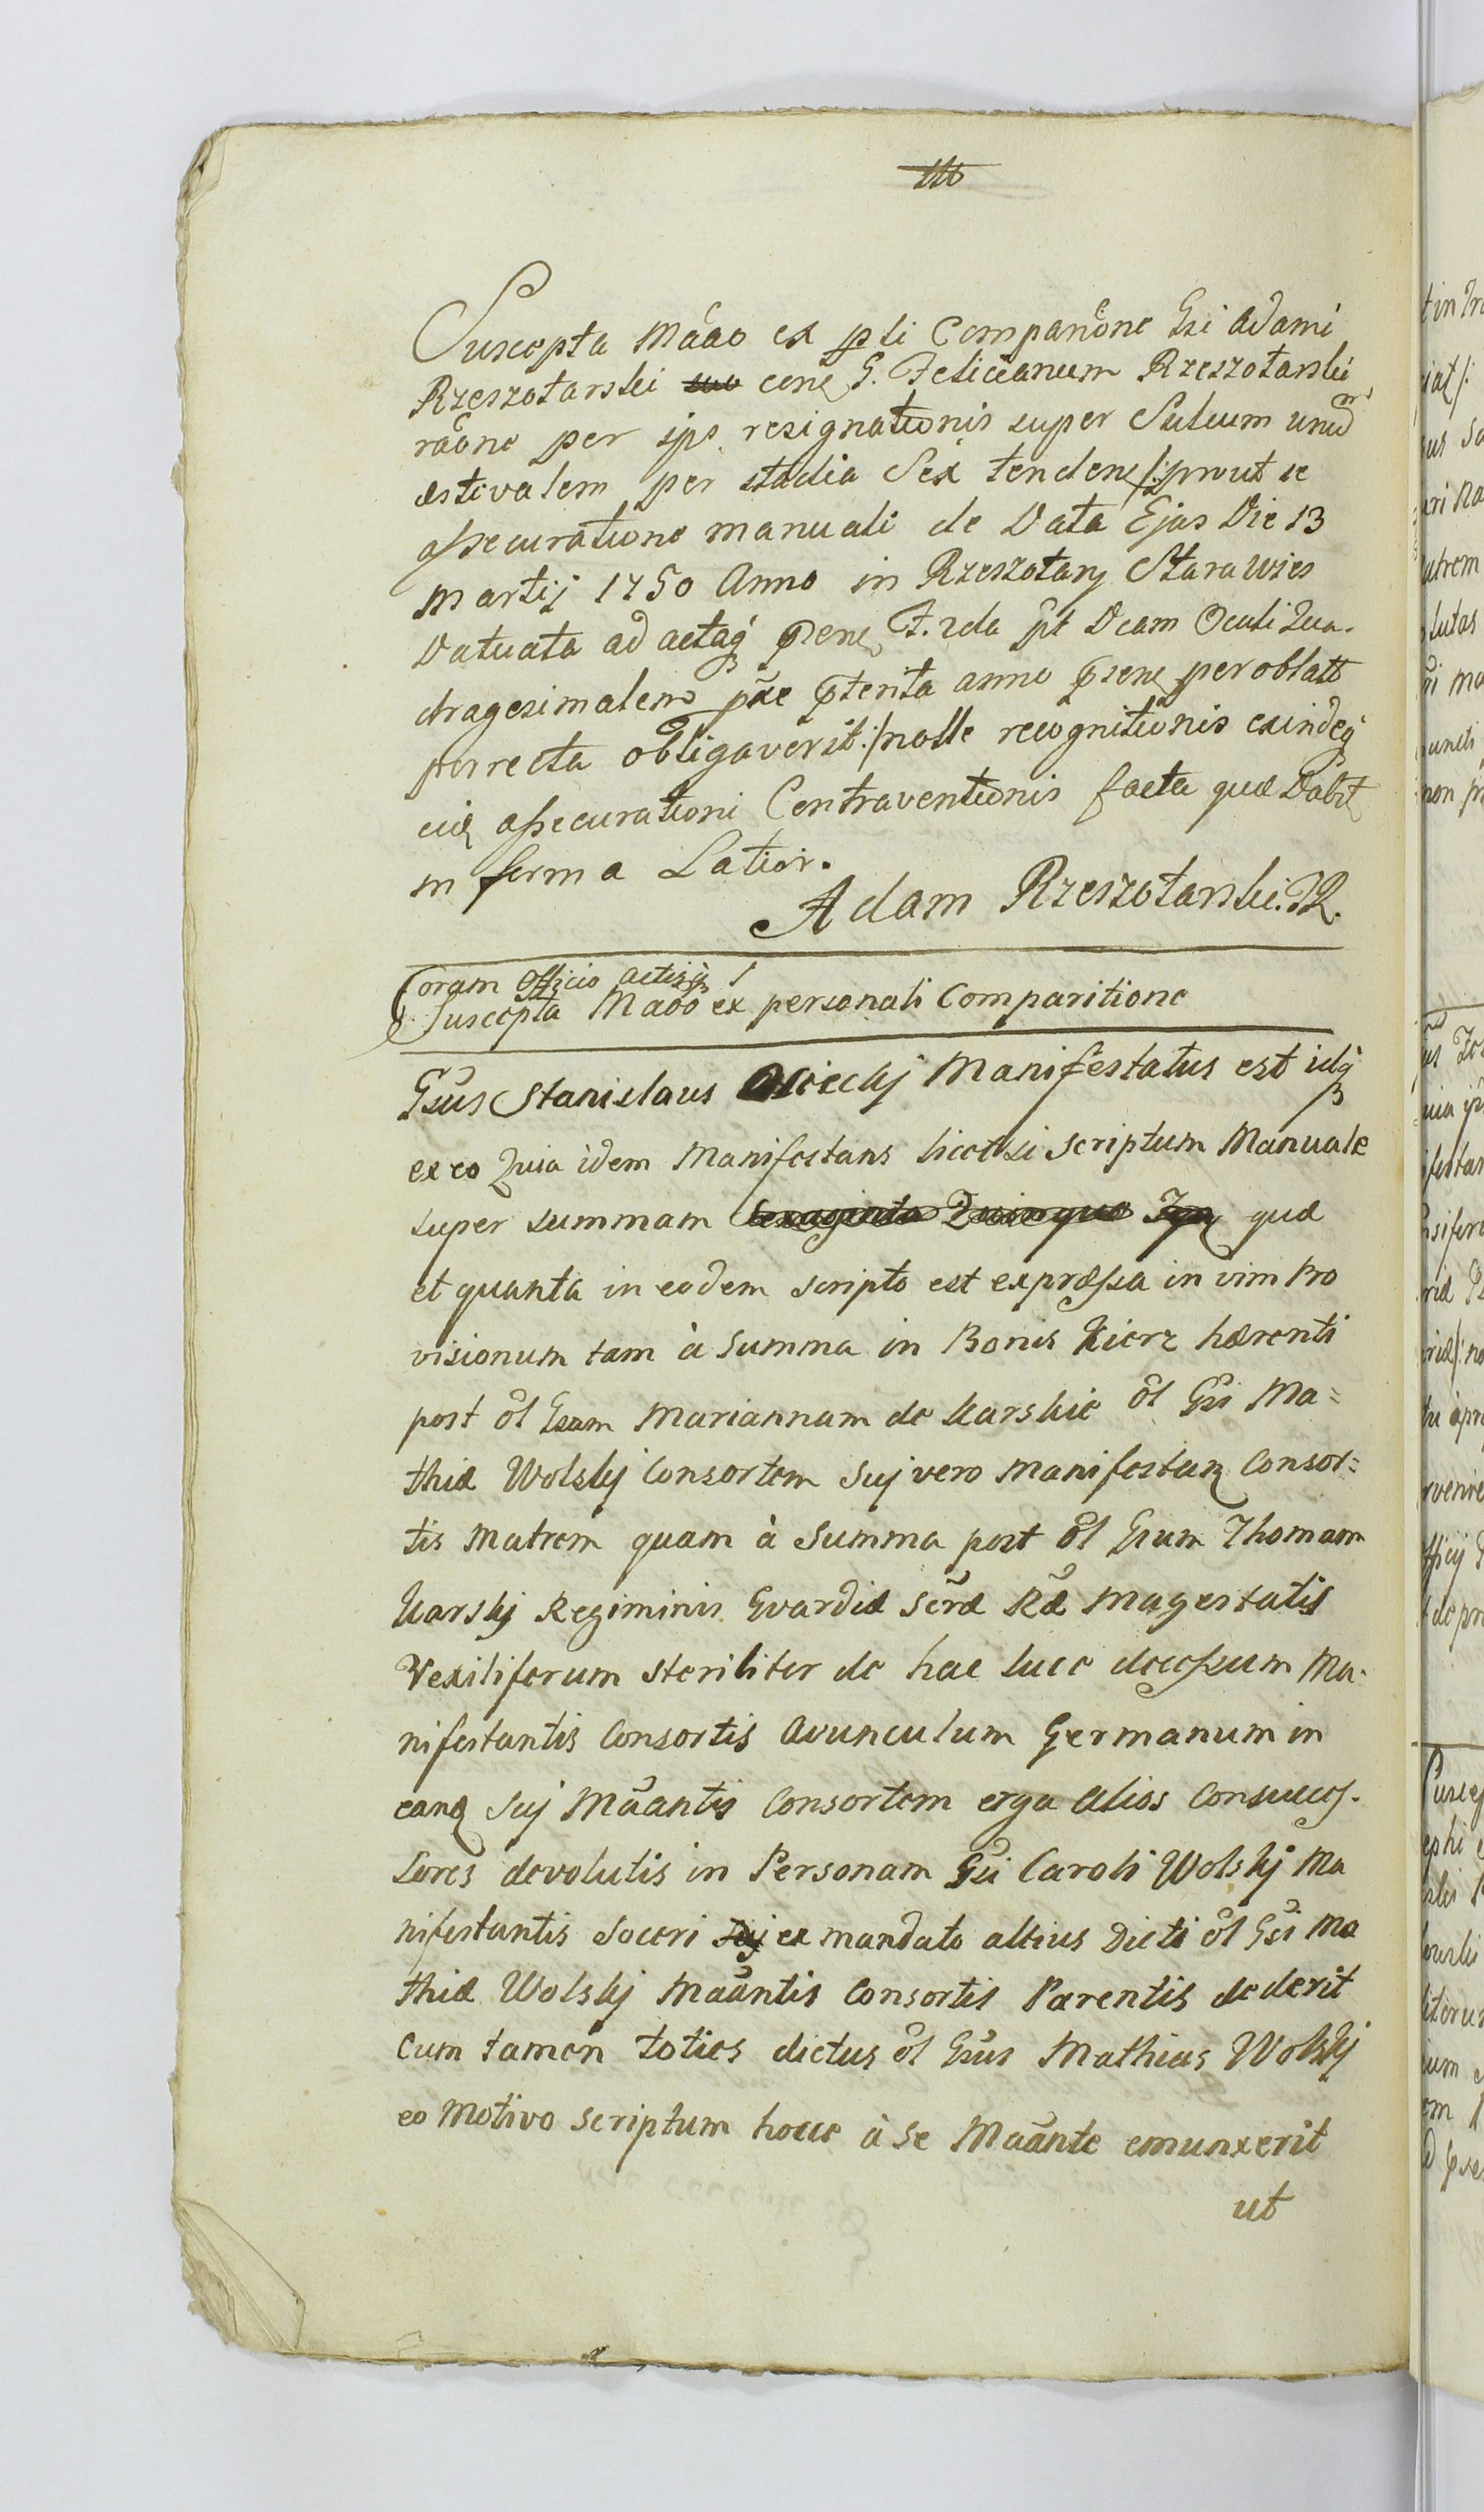 Suscepta Mãao ex pli Comparaõne Gsi Adami
Rzeszotarski cone G. Felicianum Rzeszotarski
raõne per ips. resignationis super Sulcum unũ
æstivalem per stadia Sex tendenę /: prout se
assecuratione manuali de Data Ejus Die 13
Martij 1750 Anno in Rzeszotary Stara wies
Datuata ad actaq̃ pñene F. 2da pt Dcam Oculi Qua-
dragesimalem pñe pterita anno psene per oblatt
porrecta obligaverit :/ nolle recognitionis exindeq̃
eię assecurationi Contraventionis facta quæ Dabit
in forma Latior.
Adam Rzeszotarski. R.
Coram Officio actisq̃
Suscepta Maoõ ex personali Comparitione
Gsũs Stanislaus Manifestatus est idq̃
ex eo Quia idem Manifestans licet si scriptum Manuale
super summam Sexaginta Quinque quæ
et quanta in eodem scripto est expræssa in vim Pro
visionum tam à Summa in Bonis Kierz hærenti
post õl Gsam Mariannam de Karskie õl Gsi Ma=
thiæ Wolskj Consortem Suj vero Manifestanę Consor=
tis Matrem quam à Summa post õl Gsum Thomam
Karskj Regiminis Gvardiæ Seræ Ræ Magestatis
Vexiliferum steriliter de hac luce decessum Ma-
nifestantis Consortis Avunculum Germanum in
eanę Suj Mãantis Consortem erga Alios Consucces-
sores devolutis in Personam Gsi Caroli Wolskj Ma
nifestantis Soceri Suj ex mandato altius Dicti õl Gsi Ma
thiæ Wolskj Maãntis Consortis Parentis dederit
Cum tamen toties dictus õl Gsũs Mathias Wolskj
eo Motivo Scriptum hocce à Se Maãnte emunxerit
ut